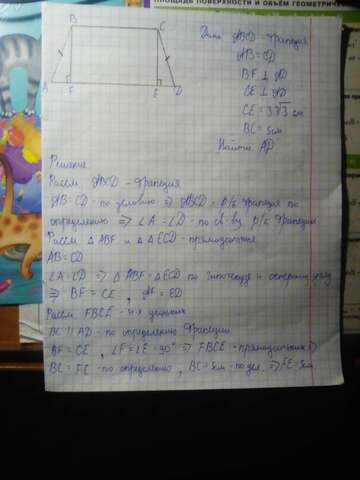 ПЛОЩАДЬ ПОВЕРХНОСТИ И ОБЪЁМ ГЕОМЕТРИЧЕС
B
C
A
F
E
D
Дано ABCD - трапеция
AB = CD
BF ⊥ AD
CE ⊥ AD
CE = 3√3 см
BC = 5см
Найти AD
Решение
Рассм ABCD - трапеция
AB = CD - по условию ⇒ ABCD - р/б трапеция по
определению ⇒ ∠A = ∠D - по св-ву р/б трапеции
Рассм △ABF и △ECD - прямоугольные
AB = CD
∠A = ∠D ⇒ △ABF = △ECD по гипотенузе и острому углу
⇒ BF = CE, AF = ED
Рассм FBCE
BC || AD - по определению трапеции
BF = CE, ∠F = ∠E = 90° ⇒ FBCE - прямоугольник ⇒
BC = FE - по определению, BC = 5см - по усл. ⇒ FE = 5см